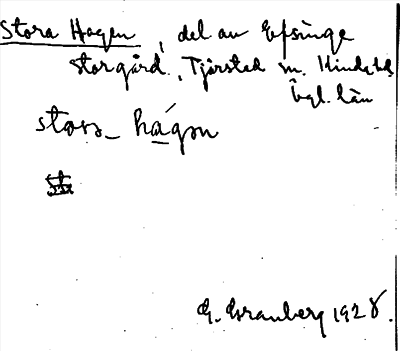 Stora Hagen, del av Efsinge
storgård, Tjärstad sn. Kinds hd
Ögl. län
stora_ hágan
G. Granberg 1928.